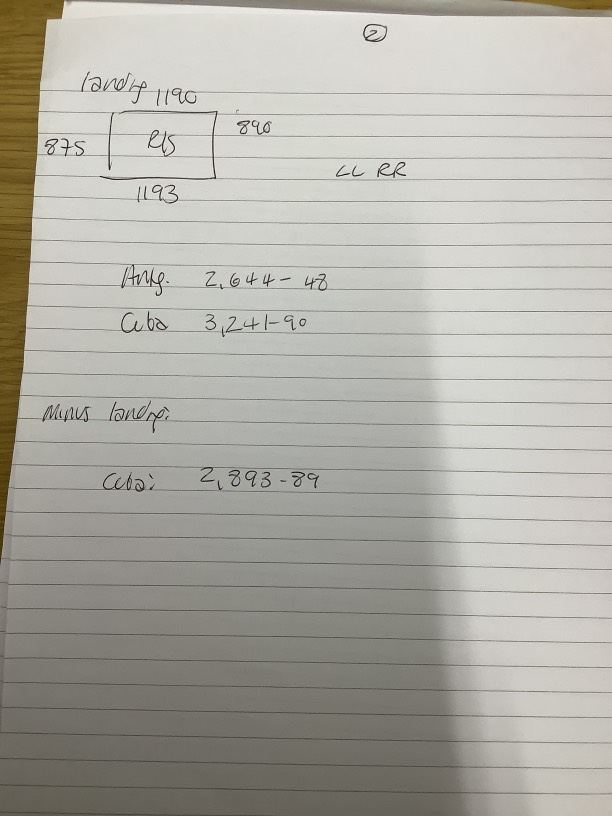 2
landing 1190
875 R/S 890
LL RR
1193
Antg. 2,644-48
Cuba 3,241-90
Minus landing:
Cuba: 2,893-89